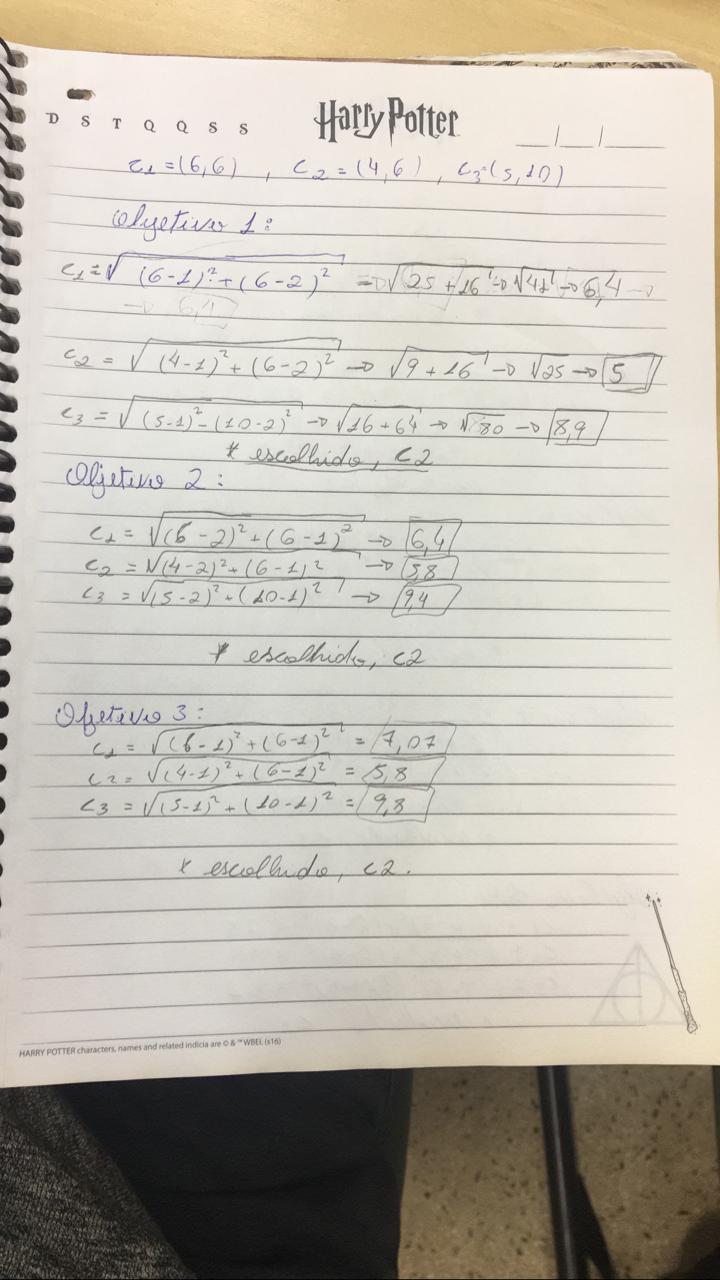 D S T Q Q S S
Harry Potter
__/__/__
C1 = (6,6) , C2 = (4,6) , C3=(5,10)
Objetivo 1:
C1 = √(6-1)² + (6-2)² => √25 + 16 → √41 → 6,4 →
→ 6,4
C2 = √(4-1)² + (6-2)² → √9 + 16 → √25 → 5
C3 = √(5-1)² - (10-2)² → √16 + 64 → √80 → 8,9
* escolhido, C2
Objetivo 2:
C1 = √(6-2)² + (6-1)² → 6,4
C2 = √(4-2)² + (6-1)² → 5,8
C3 = √(5-2)² + (10-1)² → 9,4
* escolhido, C2
Ojetivo 3:
C1 = √(6-1)² + (6-1)² = 7,07
C2 = √(4-1)² + (6-1)² = 5,8
C3 = √(5-1)² + (10-1)² = 9,8
* escolhido, C2.
HARRY POTTER characters, names and related indicia are © & ™ WBEI. (s16)